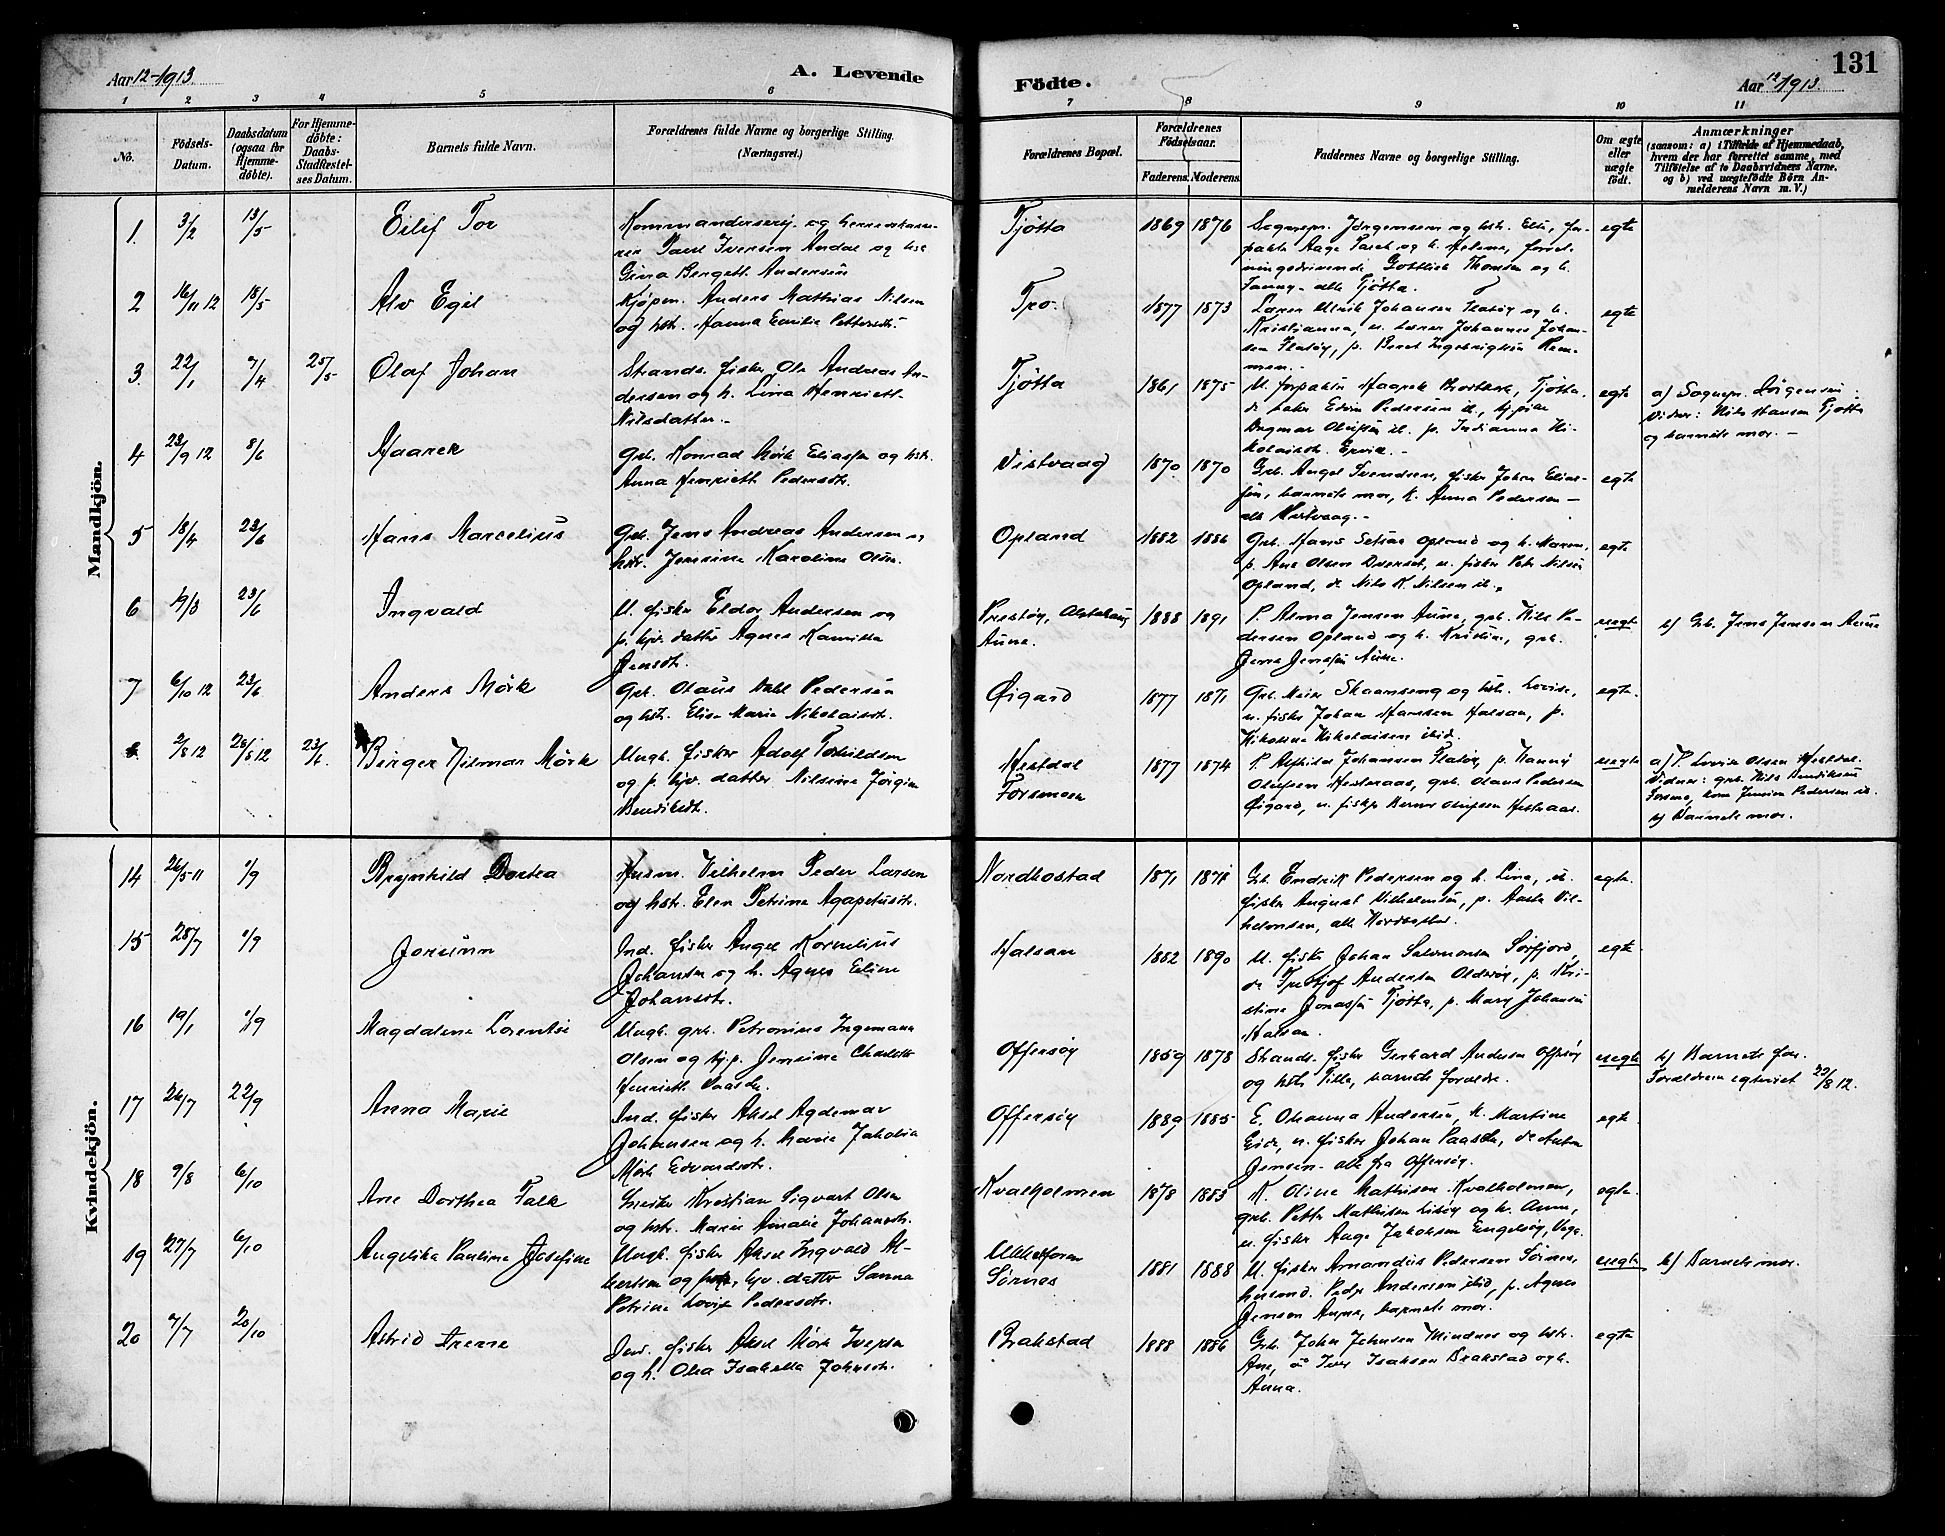 Aar 12-1913.
A. Levende
Födte.
Aar 12/1913.
131
1 2 3 4 5 6 7 8 9 10 11
No.
Födsels-Datum.
Daabsdatum (ogsaa för Hjemme-döbte).
For Hjemme-döbte: Daabs-Stadfæstel-ses Datum.
Barnets fulde Navn.
Forældrenes fulde Navne og borgerlige Stilling.
(Næringsvei.)
Forældrenes Bopæl.
Forældrenes Födselsaar.
Faderens. Moderens.
Faddernes Navne og borgerlige Stilling.
Om ægte eller uægte födt.
Anmærkninger
(saasom: a) i Tilfælde af Hjemmedaab,
hvem der har forrettet samme, med
Tilföielse af to Daabsvidners Navne,
og b) ved uægtefödte Börn An-
melderens Navn m. V.)
Mandkjön.
1. 3/2 13/5 Eilif Tor
og
ner Paul Iversen Andal og hst
Gina Bergett. Andersen
Tjøtta 1869 1876
Sognepr. Jörgensen og hst. Elis, for-
pakter Aage og h. Helene,
Gottlieb Thomsen og h.
Fanny - alle Tjøtta.
egte
2 16/11 12 18/5 Alv Egil
Kjøpm. Anders Mathias Nilsen
og hst. Hanna Emilie Pettersdt.
Tro. 1877 1873
Lærer Ulrik Johansen Flatøy og h.
Kristianna, u. lærer Johannes Johan-
sen Flatøy, p. Beret Ingebrigtsen Rem-
men.-
egte
3. 22/1 7/4 25/5 Olaf Johan
Strands. fisker Ole Andreas An-
dersen og h. Lina Henriett.
Nilsdatter.-
Tjøtta 1861 1875
U. forpakter Haarek Brodtkorb, Tjøtta,
ds. Edvin Pedersen ib,
Dagmar Olufsen ib. p. Indianna Ni-
kolaisdt. Ervik.-
egte
a) Sognepr. Jörgensen.
Vidner: Nils Hansen Tjøtta
og barnets mor.-
4 23/9 12 8/6 Haarek
Grb. Konrad Mörk Eliassen og hst.
Anna Henriett Pedersdt.
Vistvaag 1870 1870
Grb. Angel Svendsen, fisker Johan Elias-
sen, barnets mor, h. Anna Pedersen -
alle Vistvaag.-
egte
5 18/4 23/6 Hans Marcelius
Grb. Jens Andreas Andersen og
hst. Jensine Karoline Olsen.
Opland 1882 1886
Grb. Hans Opland og h. Maren,
p. Ane Olsen u. fisker Petr Nilsen
Opland, ds Nils K. Nilsen ib.
egte
6 4/3 23/6 Ingvald
U. fisker Eldor Andersen og
p. hjv. datter Agnes Kamilla
Jensdt.
Prestøy, Alstahaug
Aune.
1888 1891
P. Alma Jensen Aune, grb. Nils Pe-
dersen Opland og h. Kristine, grb.
Jens Jensen Aune.
uegte
b) Grb. Jens Jensen Aune
7 6/10 12 23/6 Anders Mörk
Grb. Olaus Dahl Pedersen
og hst. Elise Marie Nikolaisdt.
Øigard 1877 1871
Grb. Meier og hst. Lovise,
u. fisker Johan Hansen Halsan, p.
Nikoline Nikolaisen ibid.
egte.
8. 2/8 12 28/8 12 23/6. Birger Hilmar Mörk
Ungk. fisker Adolf
og p. hjv. datter Nilsine Jørgine
Bendiksdt.
Hestdal
Forsmoen
1877 1874
P. Johansen Flatøy, p. Hanny
Olufsen grb. Olaus Pedersen
Øigard, u. fisker Berner Olufsen
uegte
a) P. Lovise Olsen Hestdal.
Vidner: grb. Nils Bendiksen
Forsmo, kone Jensine Pedersen ib.
b) Barnets mor.
Kvindekjön.
14 26/5 11 1/9 Brynhild Dortea
Husm. Vilhelm Peder Larsen
og hst. Elen Petrine Agapetusdt.
Nordbostad 1871 1871
Grb. Endrik Pedersen og h. Lina, u.
fisker August Vilhelmsen, p. Aasta Vil-
helmsen, alle Nordbostad.
egte.
15 28/7 1/9 Jorunn
Ind. fisker Angel Kornelius
Johansen og h. Agnes Eline
Johansdt.
Halsan 1882 1890
U. fisker Johan Salomonsen Sørfjord,
ds Fritjof Andersen Oldersøy, p. Kri-
stine Jonassen Tjøtta, p. Mary Johansen
Halsan.
egte
16 19/1 1/9 Magdalene Lorentse
Ungk. grb. Petronius Ingemann
Olsen og hj.p. Jensine Charlotte
Henriett. Paasche.
Offersøy 1859 1878
Strands. fisker Gerhard Andersen Offersøy
og hst. Pille, barnets forældre.
uegte
b) Barnets far.
Forældrene egteviet 20/8 12.
17 26/7 22/9 Anna Marie
Ind. fisker Aksel Agdemar
Johansen og h. Marie Jakobia
Mörk Edvardsdt.
Offersøy 1889 1885
E. Ohanna Andersen, h. Martine
Eide, u. fisker Johan Paasche, ds Anton
Jensen - alle fra Offersøy.
egte
18 9/8 6/10 Ane Dorthea Falk
Kristian Sigvart Olsen
og hst. Marie Amalie Johansdt.
Kvalholmen 1878 1883
K. Oline Mathisen Kvalholmen,
grb. Petter Mathisen og h. Anna,
u. fisker Aage Jakobsen Engelsøy, Vega.
egte.
19 27/7 6/10 Angelika Pauline Josefine
Ungk. fisker Aksel Ingvald Al-
bertsen og hjv. datter Sanna
Petrine Lovise Pedersdt.
Sørnes 1881 1888
U. fisker Amandus Pedersen Sørnes,
husmd. Peder Andersen ibid, p. Agnes
Jensen Aune, barnets mor.
uegte
b) Barnets mor.
20 7/7 20/10 Astrid Irene
fisker Aksel Mörk Iversen
og h. Olea Isabella Johnsdt.
Brakstad 1888 1886
Grb. John Johnsen Mindnes og hst.
Ane, do Iver Isaksen Brakstad og h.
Anna.
egte